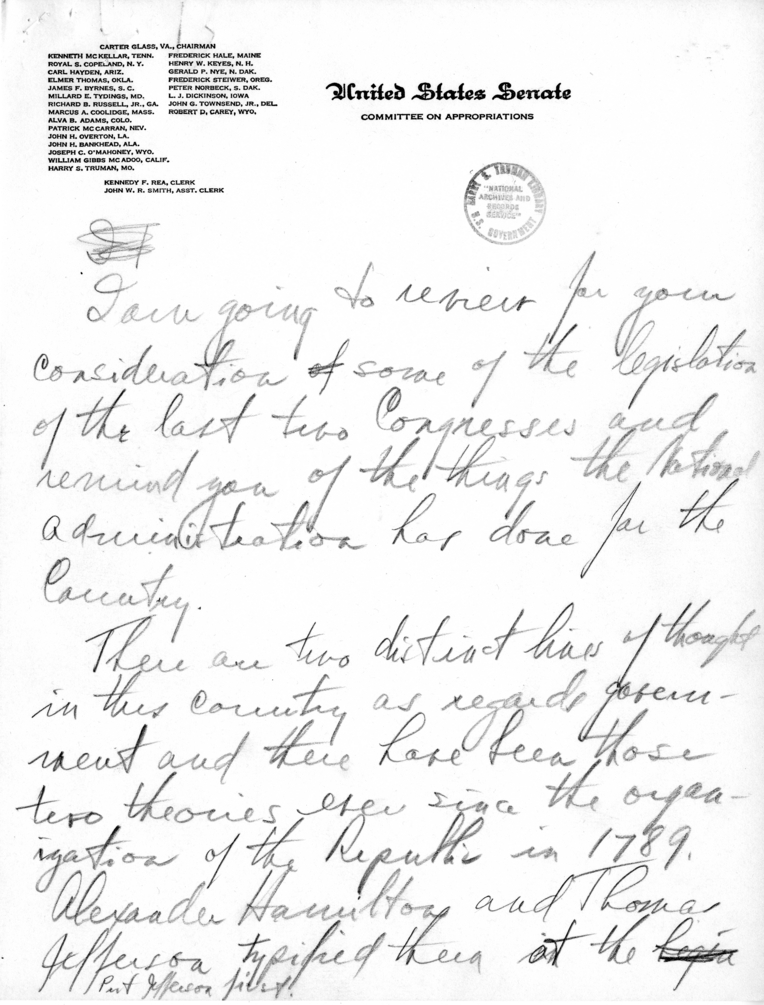 CARTER GLASS, VA., CHAIRMAN
KENNETH McKELLAR, TENN. FREDERICK HALE, MAINE
ROYAL S. COPELAND, N. Y. HENRY W. KEYES, N. H.
CARL HAYDEN, ARIZ. GERALD P. NYE, N. DAK.
ELMER THOMAS, OKLA. FREDERICK STEIWER, OREG.
JAMES F. BYRNES, S. C. PETER NORBECK, S. DAK.
MILLARD E. TYDINGS, MD. L. J. DICKINSON, IOWA
RICHARD B. RUSSELL, JR., GA. JOHN G. TOWNSEND, JR., DEL.
MARCUS A. COOLIDGE, MASS. ROBERT D. CAREY, WYO.
ALVA B. ADAMS, COLO.
PATRICK McCARRAN, NEV.
JOHN H. OVERTON, LA.
JOHN H. BANKHEAD, ALA.
JOSEPH C. O'MAHONEY, WYO.
WILLIAM GIBBS McADOO, CALIF.
HARRY S. TRUMAN, MO.
KENNEDY F. REA, CLERK
JOHN W. R. SMITH, ASST. CLERK
United States Senate
COMMITTEE ON APPROPRIATIONS
HARRY S. TRUMAN LIBRARY
"NATIONAL
ARCHIVES AND
RECORDS
SERVICE"
U.S. GOVERNMENT
I am going to review for your
consideration of some of the legislation
of the last two Congresses and
remind you of the things the National
administration has done for the
Country.
There are two distinct lines of thought
in this country as regards govern-
ment and there have been those
two theories ever since the organ-
ization of the Republic in 1789.
Alexander Hamilton and Thomas
Jefferson typified them at the begin
Put Jefferson first.